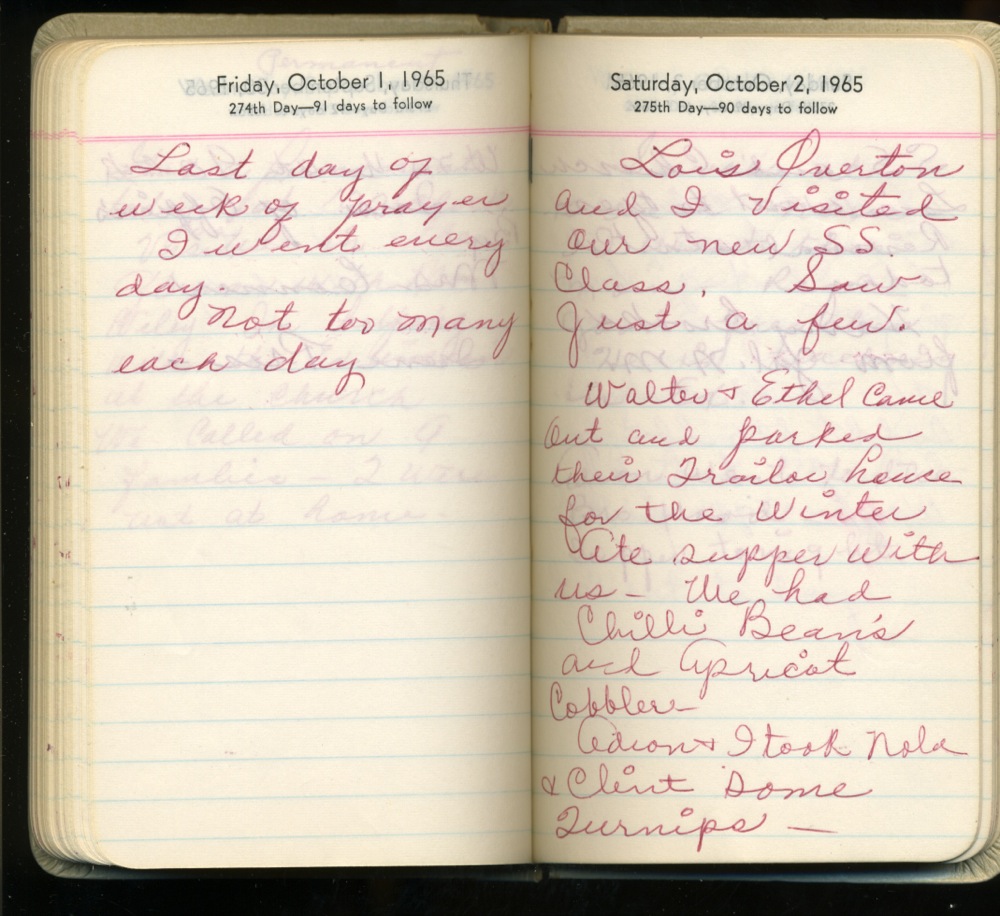 Friday, October 1, 1965
274th Day—91 days to follow
Last day of
week of prayer
I went every
day.
Not too many
each day
Saturday, October 2, 1965
275th Day—90 days to follow
Lois Overton
and I visited
our new SS.
Class. Saw
Just a few.
Walter & Ethel Came
Out and parked
their Trailor house
for the Winter
Ate supper With
us — We had
Chilli Bean's
and Apricot
Cobbler—
& I took Nola
& Clint Some
Turnips —